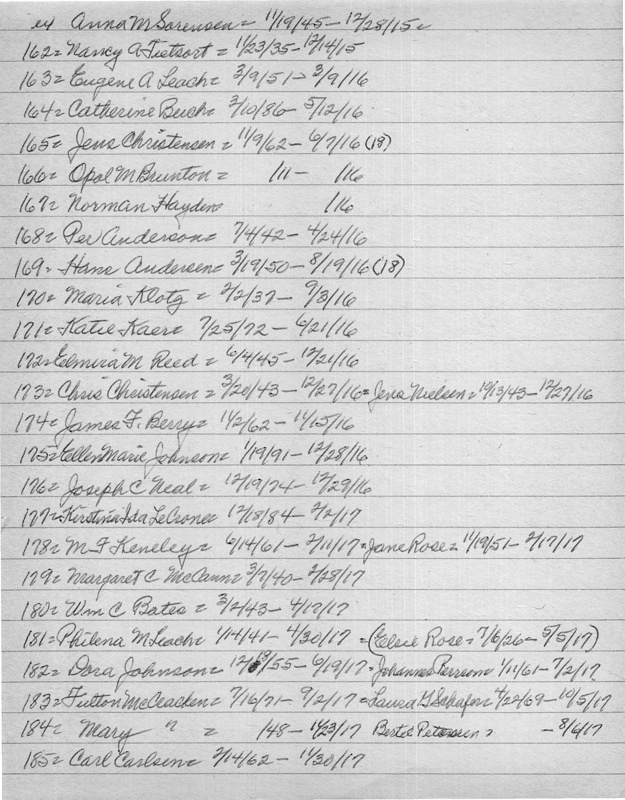 ex Anna M Sorensen = 11/19/45 - 12/28/15 =
162 = Nancy A Tietsort = 11/23/35 - 12/14/15
163 = Eugene A Leach = 3/9/51 - 3/9/16
164 = Catherine Beich = 2/10/86 - 5/12/16
165 = Jens Christensen = 11/9/62 - 6/7/16 (15)
166 = Opal M Brunton = /11 - /16
167 = Norman Hayden = /16
168 = Per Anderson = 7/4/42 - 4/24/16
169 = Hans Andersen = 3/19/50 - 8/19/16 (18)
170 = Maria Klotz = 2/2/37 - 9/8/16
171 = Katie Kaer = 7/25/72 - 6/21/16
172 = Elmira M Reed = 6/4/45 - 12/21/16
173 = Chris Christensen = 3/20/43 - 12/27/16 = Jens Nielsen = 10/13/43 - 12/27/16
174 = James F. Berry = 11/2/62 - 11/15/16
175 = Ellen Marie Johnson = 1/19/91 - 12/28/16
176 = Joseph C Neal = 12/19/74 - 12/29/16
177 = Kirstina Ida LeCrone = 12/18/84 - 2/2/17
178 = M F Keneley = 6/14/61 - 2/11/17 = Jane Rose = 11/19/51 - 2/17/17
179 = Margaret C McCann = 3/7/40 - 2/28/17
180 = Wm C Bates = 3/2/43 - 4/17/17
181 = Philena M Leach = 1/14/41 - 4/30/17 = (Elsie Rose = 7/6/26 - 5/5/17)
182 = Dora Johnson = 12/13/55 - 6/19/17 = Johannes Persson = 1/11/61 - 7/2/17
183 = Fulton McCracken = 7/16/71 - 9/2/17 = Laura G Schafer = 4/22/69 - 10/5/17
184 = Mary " = /48 - 11/23/17 Bertel Petersen = - 8/6/17
185 = Carl Carlsen = 2/14/62 - 11/30/17